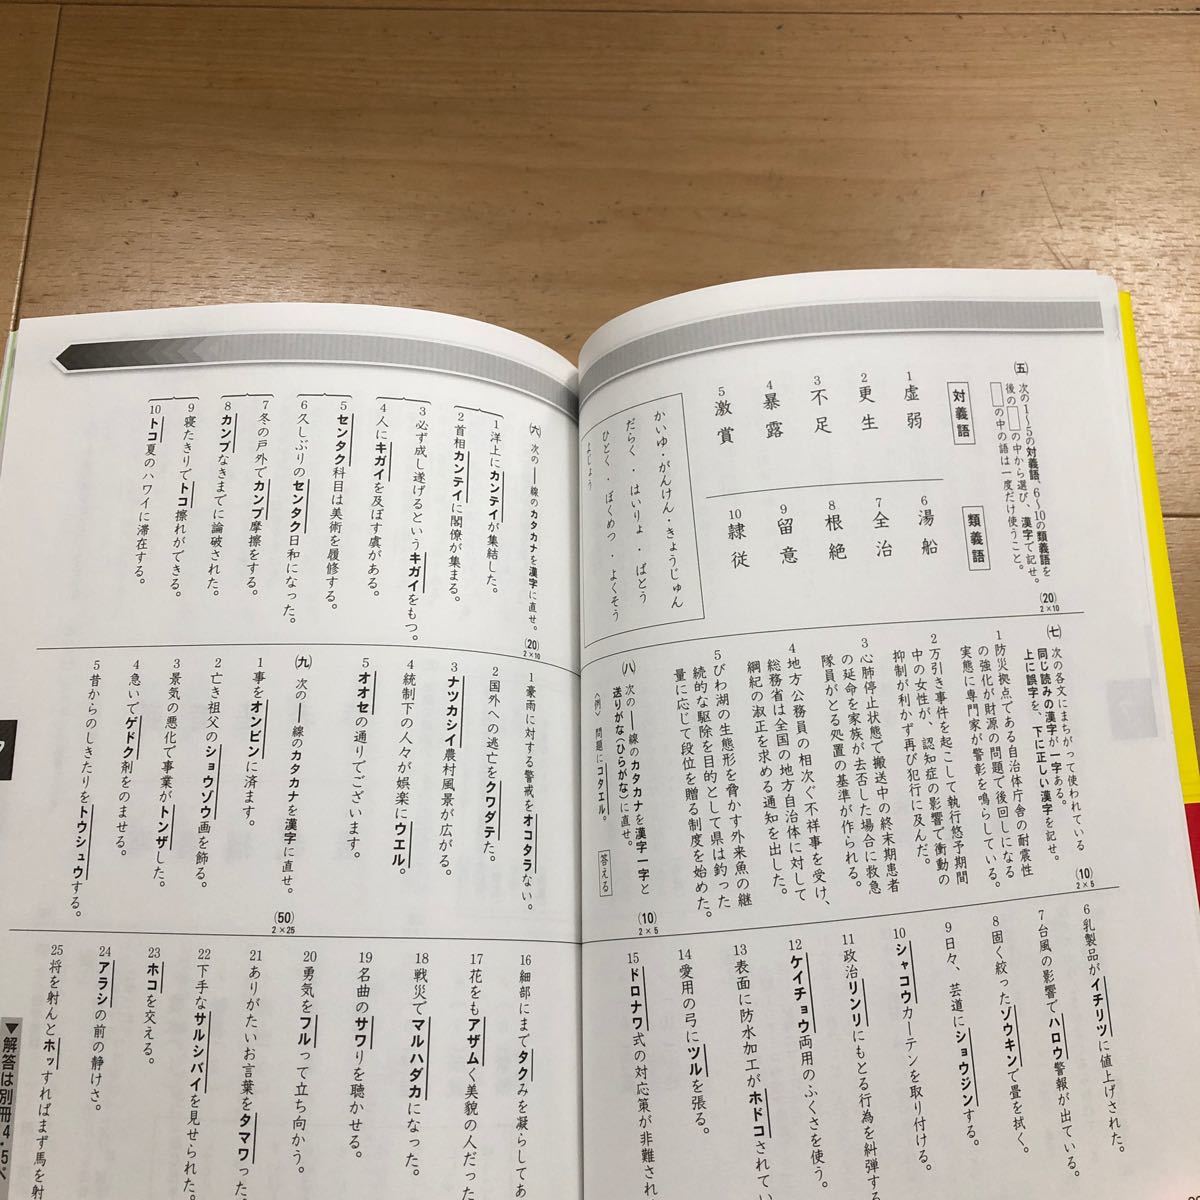 ㈤ 次の1〜5の対義語、6〜10の類義語を
後の□の中から選び、漢字で記せ。
□の中の語は一度だけ使うこと。
(20)
2×10
対義語
1 虚弱
2 更生
3 不足
4 暴露
5 激賞
類義語
6 湯船
7 全治
8 根絶
9 留意
10 隷従
かいゆ・がんけん・きょうじゅん
だらく・はいりょ・ばとう
ひとく・ぼくめつ・よくそう
よじょう
㈥ 次の――線のカタカナを漢字に直せ。
(20)
2×10
1 洋上にカンテイが集結した。
2 首相カンテイに閣僚が集まる。
3 必ず成し遂げるというキガイをもつ。
4 人にキガイを及ぼす虞がある。
5 センタク科目は美術を履修する。
6 久しぶりのセンタク日和になった。
7 冬の戸外でカンプ摩擦をする。
8 カンプなきまでに論破された。
9 寝たきりでトコ擦れができる。
10 トコ夏のハワイに滞在する。
㈦ 次の各文にまちがって使われている
同じ読みの漢字が一字ある。
上に誤字を、下に正しい漢字を記せ。
(10)
2×5
1 防災拠点である自治体庁舎の耐震性
の強化が財源の問題で後回しになる
実態に専門家が警彰を鳴らしている。
2 万引き事件を起こして執行悠予期間
中の女性が、認知症の影響で衝動の
抑制が利かず再び犯行に及んだ。
3 心肺停止状態で搬送中の終末期患者
の延命を家族が去否した場合に救急
隊員がとる処置の基準が作られる。
4 地方公務員の相次ぐ不祥事を受け、
総務省は全国の地方自治体に対して
綱紀の淑正を求める通知を出した。
5 びわ湖の生態形を脅かす外来魚の継
続的な駆除を目的として県は釣った
量に応じて段位を贈る制度を始めた。
㈧ 次の――線のカタカナを漢字一字と
送りがな(ひらがな)に直せ。
〈例〉 問題にコタエル。 答える
(10)
2×5
1 豪雨に対する警戒をオコタラない。
2 国外への逃亡をクワダテた。
3 ナツカシイ農村風景が広がる。
4 統制下の人々が娯楽にウエル。
5 オオセの通りでございます。
㈨ 次の――線のカタカナを漢字に直せ。
(50)
2×25
1 事をオンビンに済ます。
2 亡き祖父のショウゾウ画を飾る。
3 景気の悪化で事業がトンザした。
4 急いでゲドク剤をのませる。
5 昔からのしきたりをトウシュウする。
6 乳製品がイチリツに値上げされた。
7 台風の影響でハロウ警報が出ている。
8 固く絞ったゾウキンで畳を拭く。
9 日々、芸道にショウジンする。
10 シャコウカーテンを取り付ける。
11 政治リンリにもとる行為を糾弾する
12 ケイチョウ両用のふくさを使う。
13 表面に防水加工がホドコされてい
14 愛用の弓にツルを張る。
15 ドロナワ式の対応策が非難され
16 細部にまでタクみを凝らしてあ
17 花をもアザムく美貌の人だった
18 戦災でマルハダカになった。
19 名曲のサワりを聴かせる。
20 勇気をフルって立ち向かう。
21 ありがたいお言葉をタマワった。
22 下手なサルシバイを見せられた。
23 ホコを交える。
24 アラシの前の静けさ。
25 将を射んとホッすればまず馬を射
▼解答は別冊4・5ペ